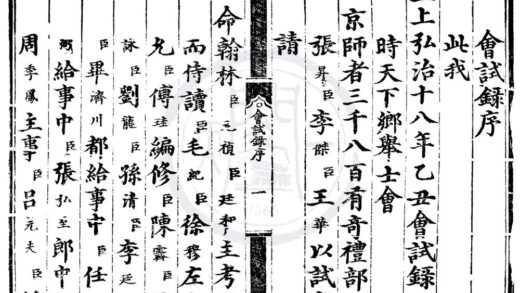 會試錄序
此我
上弘治十八年乙丑會試錄
時天下鄉舉士會
京師者三千八百有奇禮部
張昇臣李傑臣王華以試
請
會試錄序 一
命翰林臣元禎臣廷和主考
而侍讀臣毛紀臣徐穆左
允臣傅珪編修臣陳霽臣
詠臣劉龍臣孫清臣李廷
臣畢濟川都給事中臣任
河給事中臣張弘至郎中
周季鳳主事臣呂元夫